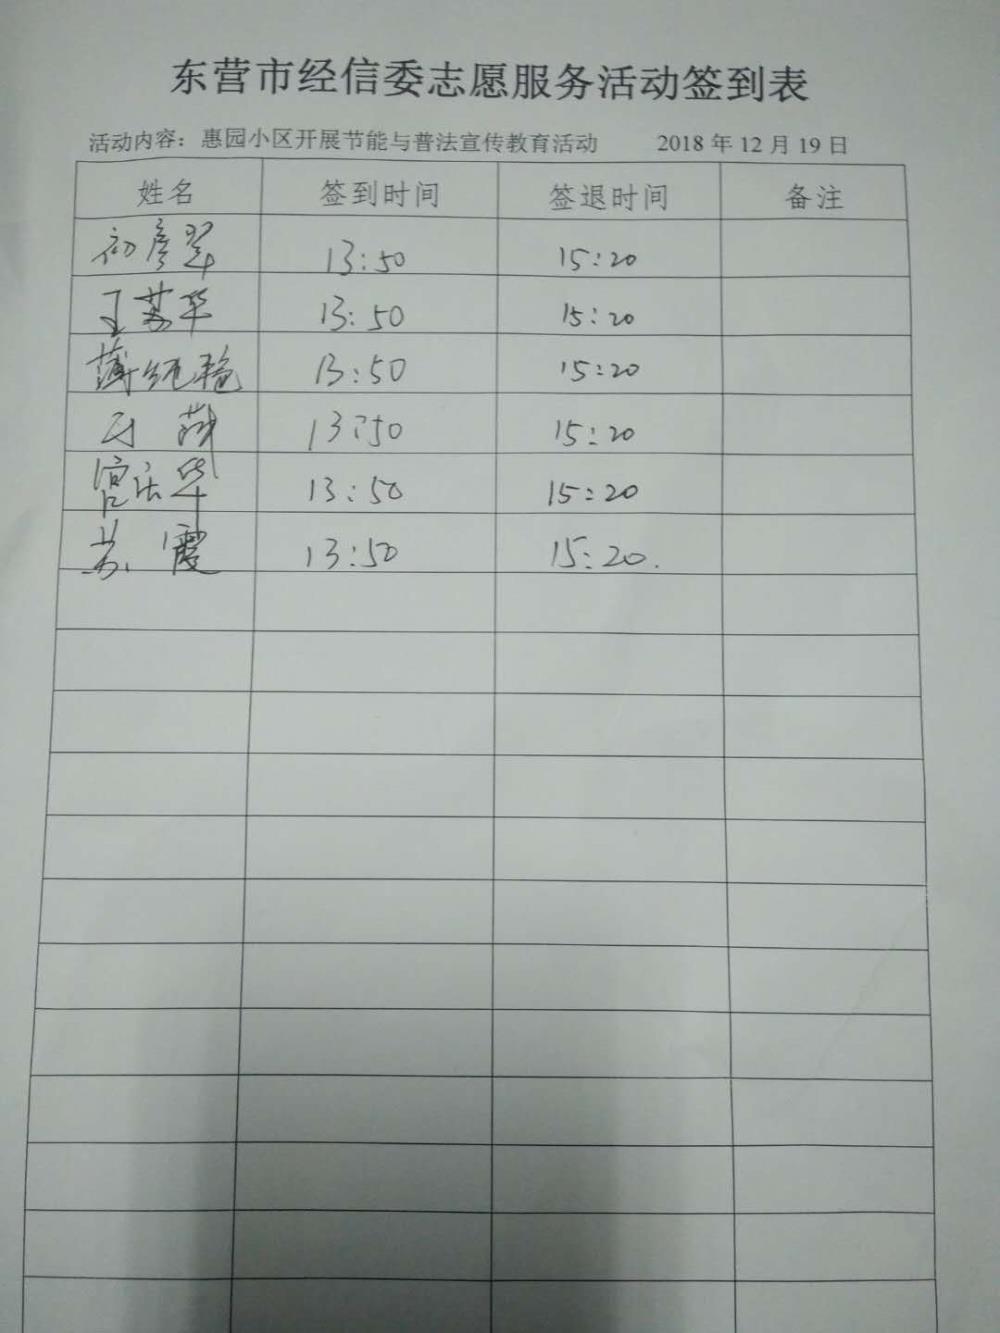 东营市经信委志愿服务活动签到表
活动内容：惠园小区开展节能与普法宣传教育活动 2018 年 12 月 19 日
姓名 签到时间 签退时间 备注
初彦翠 13:50 15:20
王苏华 13:50 15:20
薄纯艳 13:50 15:20
13:50 15:20
官法华 13:50 15:20
苏霞 13:50 15:20.